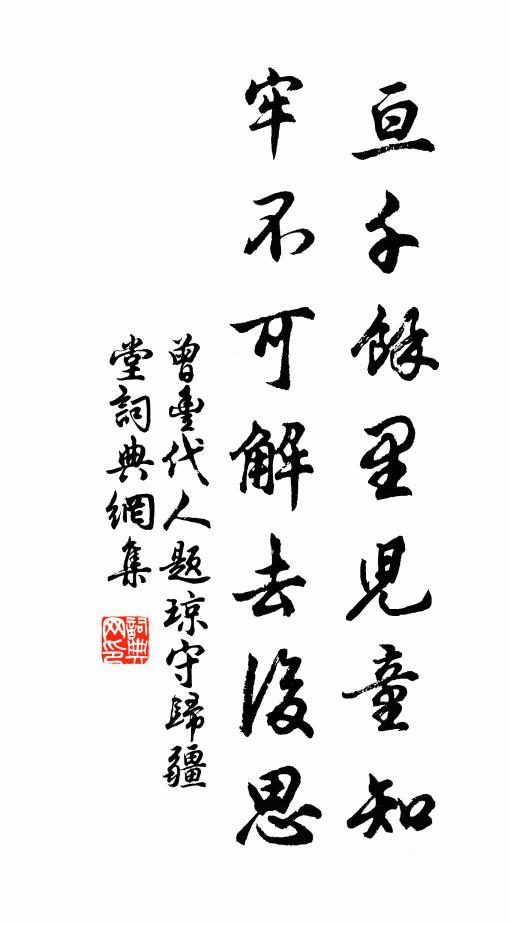 亘千餘里兒童知
牢不可解去後思
曾豐代人題琼守歸疆
堂詞典網集
詞典
网印